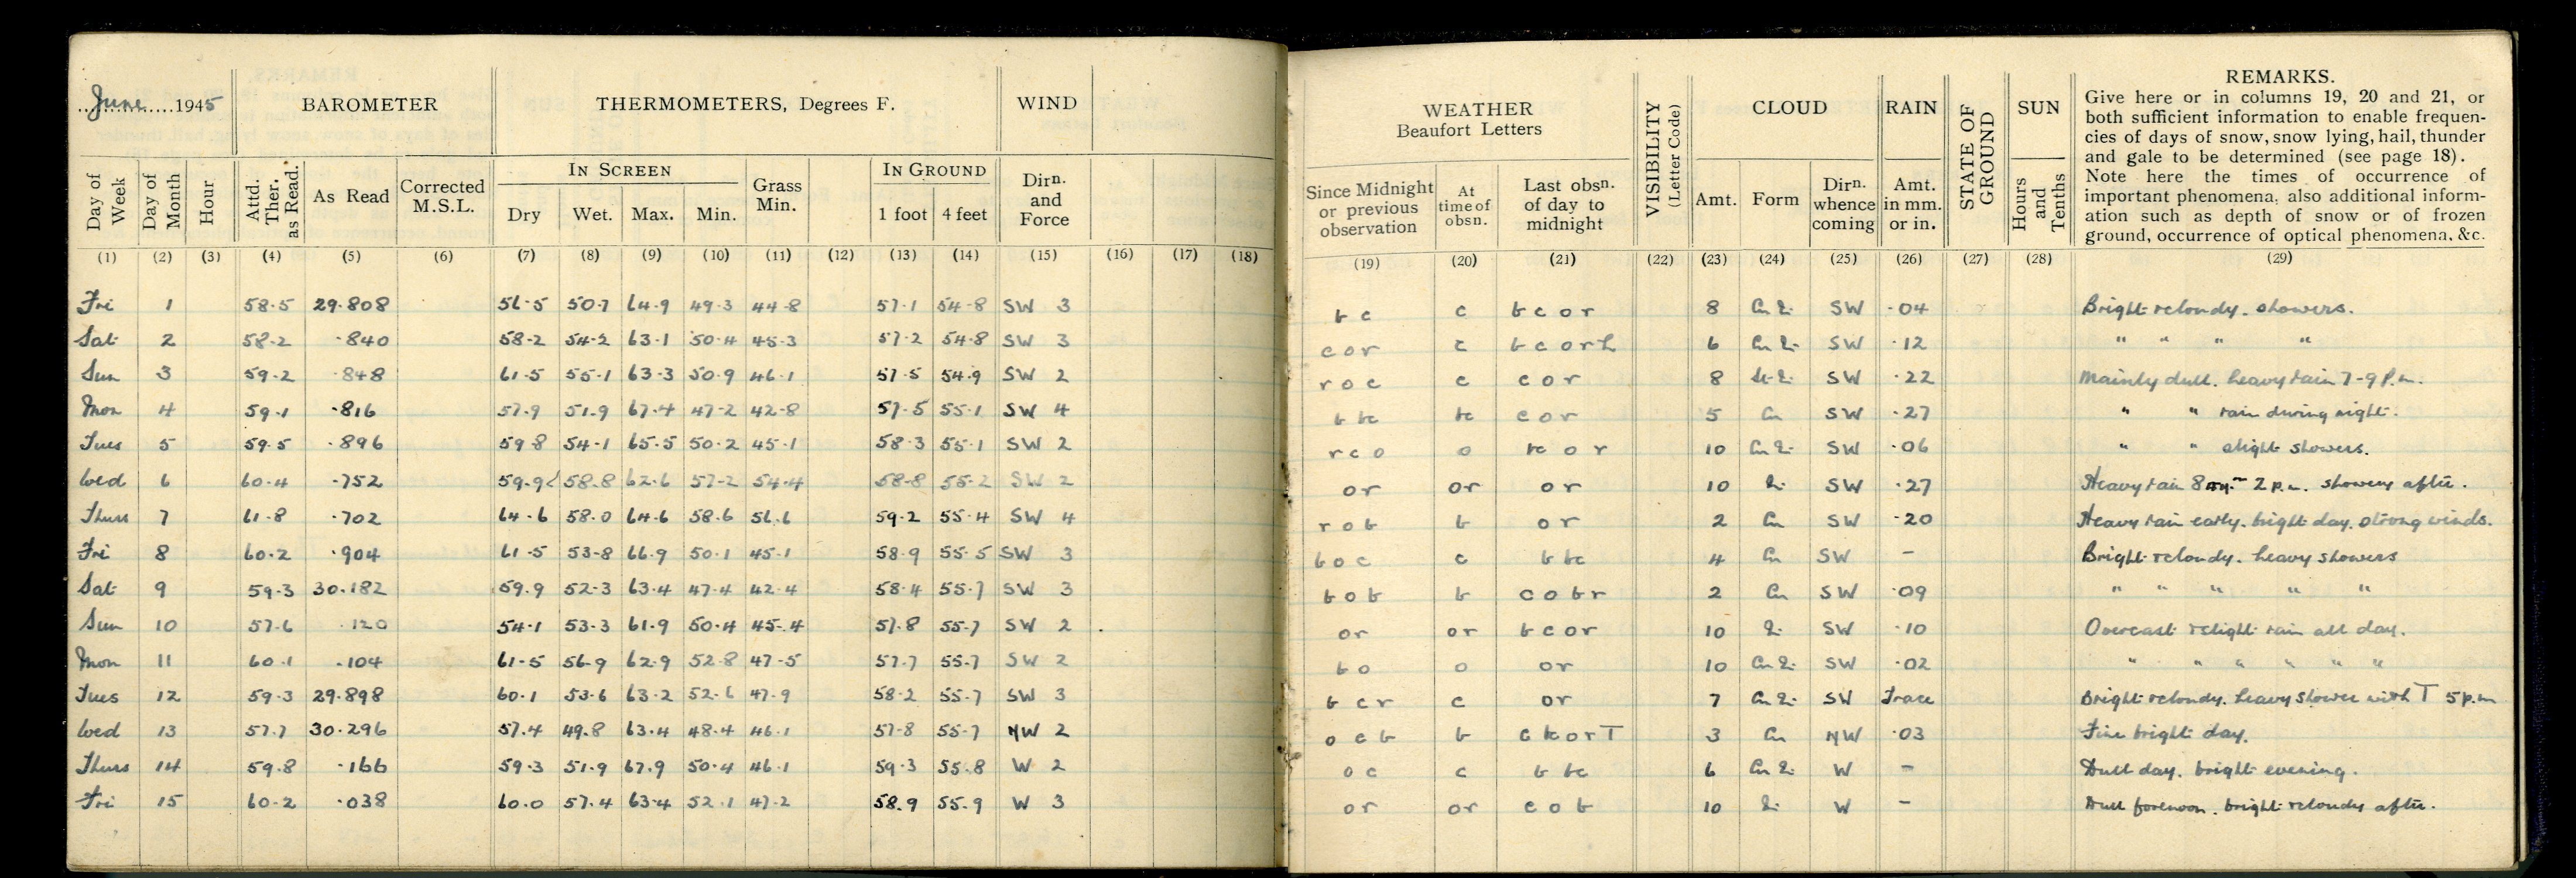 June 1945 BAROMETER THERMOMETERS, Degrees F. WIND
Day of Week Day of Month Hour Attd. Ther. as Read. As Read Corrected M.S.L. IN SCREEN Dry Wet. Max. Min. Grass Min. IN GROUND 1 foot 4 feet Dirn. and Force
(1) (2) (3) (4) (5) (6) (7) (8) (9) (10) (11) (12) (13) (14) (15) (16) (17) (18)
Fri 1 58.5 29.808 56.5 50.7 64.9 49.3 44.8 57.1 54.8 SW 3
Sat 2 58.2 .840 58.2 54.2 63.1 50.4 45.3 57.2 54.8 SW 3
Sun 3 59.2 .848 61.5 55.1 63.3 50.9 46.1 57.5 54.9 SW 2
Mon 4 59.1 .816 57.9 51.9 67.4 47.2 42.8 57.5 55.1 SW 4
Tues 5 59.5 .896 59.8 54.1 65.5 50.2 45.1 58.3 55.1 SW 2
Wed 6 60.4 .752 59.9 58.8 62.6 57.2 54.4 58.8 55.2 SW 2
Thurs 7 61.8 .702 64.6 58.0 64.6 58.6 56.6 59.2 55.4 SW 4
Fri 8 60.2 .904 61.5 53.8 66.9 50.1 45.1 58.9 55.5 SW 3
Sat 9 59.3 30.182 59.9 52.3 63.4 47.4 42.4 58.4 55.7 SW 3
Sun 10 57.6 .120 54.1 53.3 61.9 50.4 45.4 57.8 55.7 SW 2
Mon 11 60.1 .104 61.5 56.9 62.9 52.8 47.5 57.7 55.7 SW 2
Tues 12 59.3 29.898 60.1 53.6 63.2 52.6 47.9 58.2 55.7 SW 3
Wed 13 57.7 30.296 57.4 49.8 63.4 48.4 46.1 57.8 55.7 NW 2
Thurs 14 59.8 .166 59.3 51.9 67.9 50.4 46.1 59.3 55.8 W 2
Fri 15 60.2 .038 60.0 57.4 63.4 52.1 47.2 58.9 55.9 W 3
WEATHER Beaufort Letters VISIBILITY (Letter Code) CLOUD RAIN STATE OF GROUND SUN REMARKS.
Since Midnight or previous observation At time of obsn. Last obsn. of day to midnight Amt. Form Dirn. whence coming Amt. in mm. or in. Hours and Tenths
Give here or in columns 19, 20 and 21, or
both sufficient information to enable frequen-
cies of days of snow, snow lying, hail, thunder
and gale to be determined (see page 18).
Note here the times of occurrence of
important phenomena, also additional inform-
ation such as depth of snow or of frozen
ground, occurrence of optical phenomena, &c.
(19) (20) (21) (22) (23) (24) (25) (26) (27) (28) (29)
bc c bcor 8 Cu Ni SW .04 Bright & cloudy. showers.
cor c bcorh 6 Cu Ni SW .12 " " " "
roc c cor 8 St Ni SW .22 Mainly dull. heavy rain 7-9 p.m.
b bc bc cor 5 Cu SW .27 " " rain during night.
rco o bc or 10 Cu Ni SW .06 " " slight showers.
or or or 10 Ni SW .27 Heavy rain 8 2 p.m. showery after.
rob b or 2 Cu SW .20 Heavy rain early. bright day. strong winds.
boc c b bc 4 Cu SW - Bright & cloudy. heavy showers
bob b cobr 2 Cu SW .09 " " " " "
or or bcor 10 Ni SW .10 Overcast & slight rain all day.
bo o or 10 Cu Ni SW .02 " " " " " "
bcr c or 7 Cu Ni SW Trace Bright & cloudy. heavy shower with T 5 p.m
ocb b c bc or T 3 Cu NW .03 Fine bright day.
oc c b bc 6 Cu Ni W - Dull day. bright evening.
or or cob 10 Ni W - Dull forenoon. bright & cloudy after.